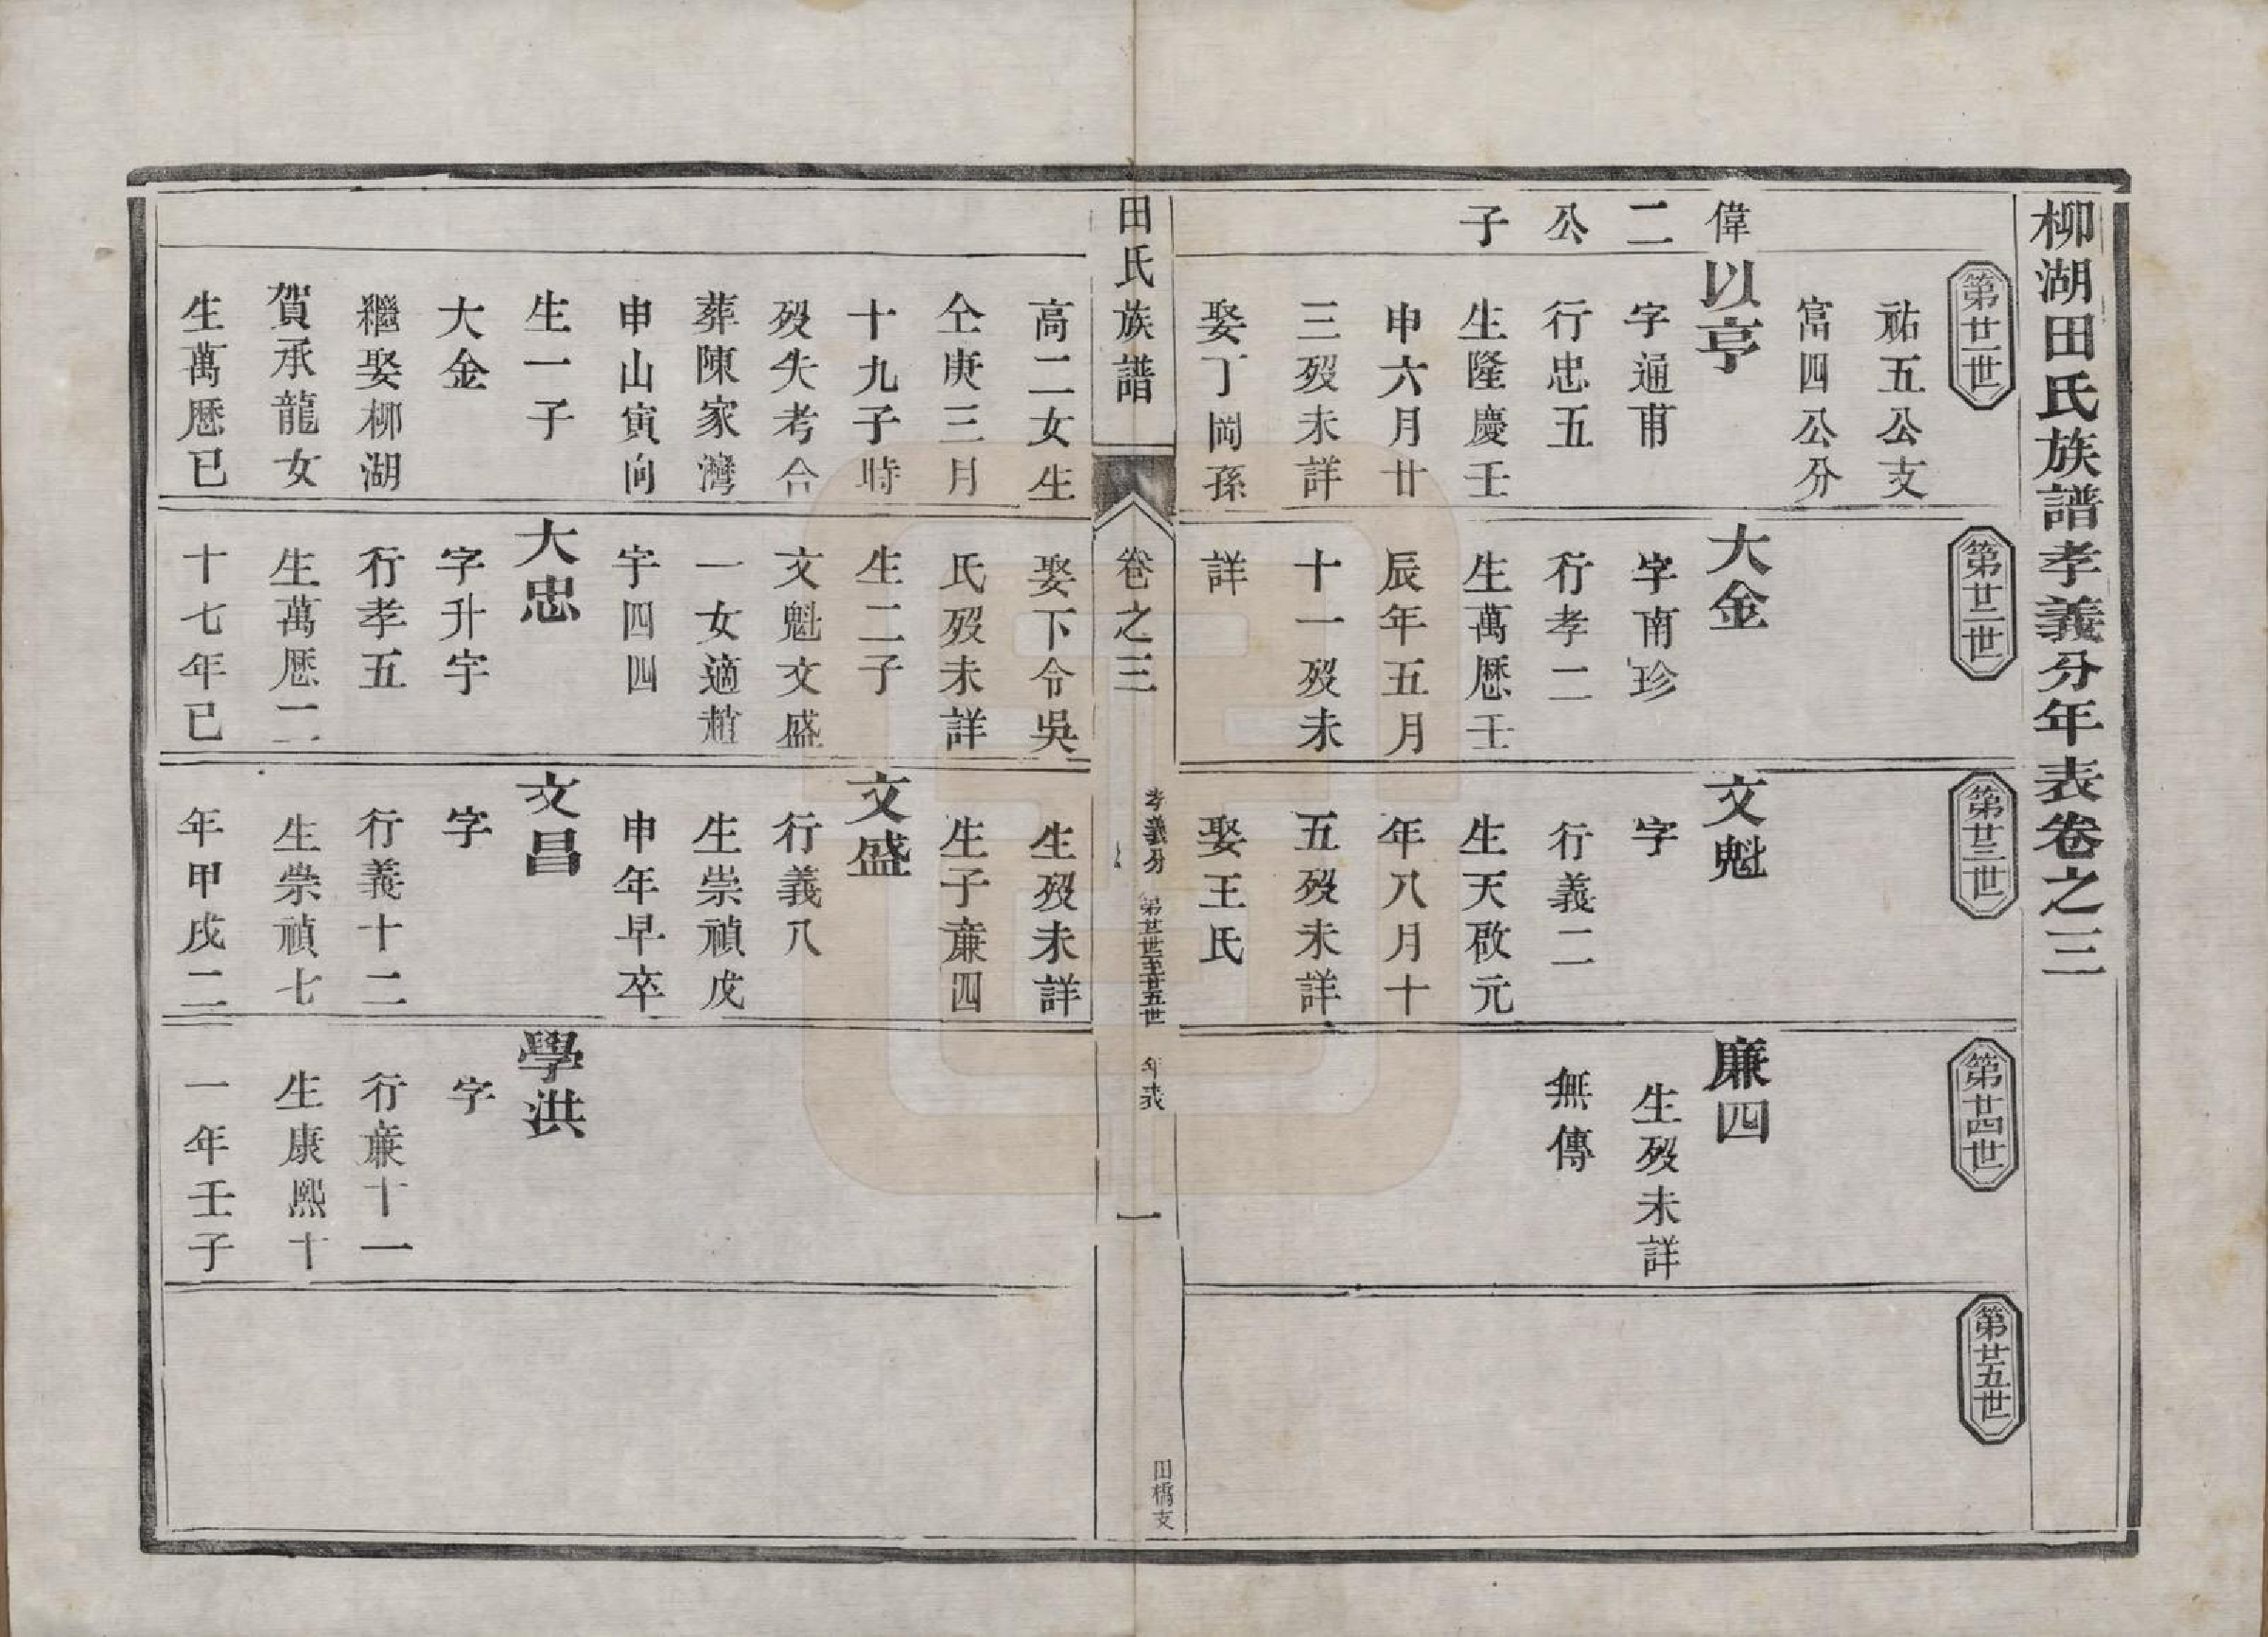 柳湖田氏族譜孝義分年表卷之三
第廿一世
祐五公支
富四公分
偉二公子
以亨
字通甫
行忠五
生隆慶壬
申六月廿
三歿未詳
娶丁岡孫
第廿二世
大金
字南珍
行孝二
生萬厯壬
辰年五月
十一歿未
詳
第廿三世
文魁
字
行義二
生天啟元
年八月十
五歿未詳
娶王氏
第廿四世
廉四
生歿未詳
無傳
第廿五世
田氏族譜
卷之三
孝義分
第廿一世至廿五世
年表
一
田橋支
高二女生
仝庚三月
十九子時
歿失考合
葬陳家灣
申山寅向
生一子
大金
繼娶柳湖
賀承龍女
生萬厯已
娶下令吳
氏歿未詳
生二子
文魁文盛
一女適趙
宇四四
大忠
字升宇
行孝五
生萬厯二
十七年已
生歿未詳
生子亷四
文盛
行義八
生崇禎戊
申年早卒
文昌
字
行義十二
生崇禎七
年甲戌二
學洪
字
行亷十一
生康熙十
一年壬子